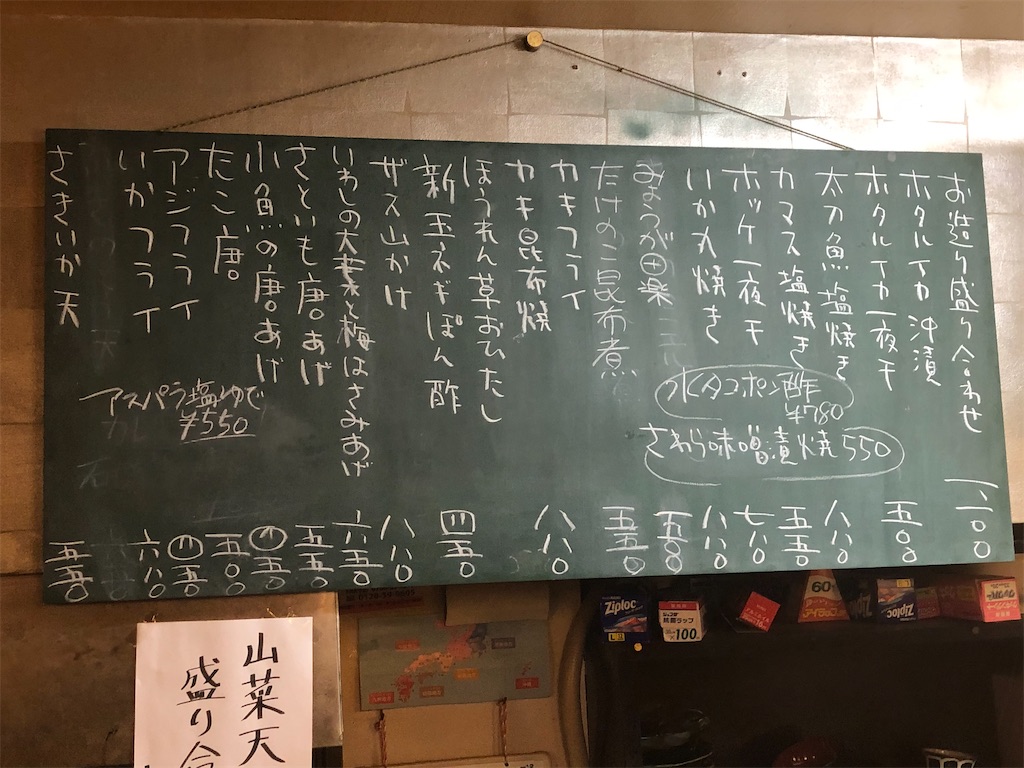 お造り盛り合わせ 一、一〇〇
ホタルイカ沖漬 五〇〇
ホタルイカ一夜干
太刀魚塩焼き 八八〇
カマス塩焼き 五五〇
ホッケ一夜干 七八〇
いか丸焼き 八八〇
みょうが田楽 五五〇
たけのこ昆布煮 五五〇
カキフライ 八八〇
カキ昆布焼
ほうれん草おひたし
新玉ネギぽん酢 四五〇
ザス山かけ 八八〇
いわしの大葉と梅はさみあげ 六五〇
さといも唐あげ 五五〇
小魚の唐あげ 四五〇
たこ唐 五〇〇
アジフライ 四五〇
いかフライ 六八〇
さきいか天 五五〇
水タコポン酢
¥780
さわら味噌漬焼 550
アスパラ塩ゆで
¥550
山菜天
盛り合
Ziploc
抗菌ラップ
100
60
Ziploc